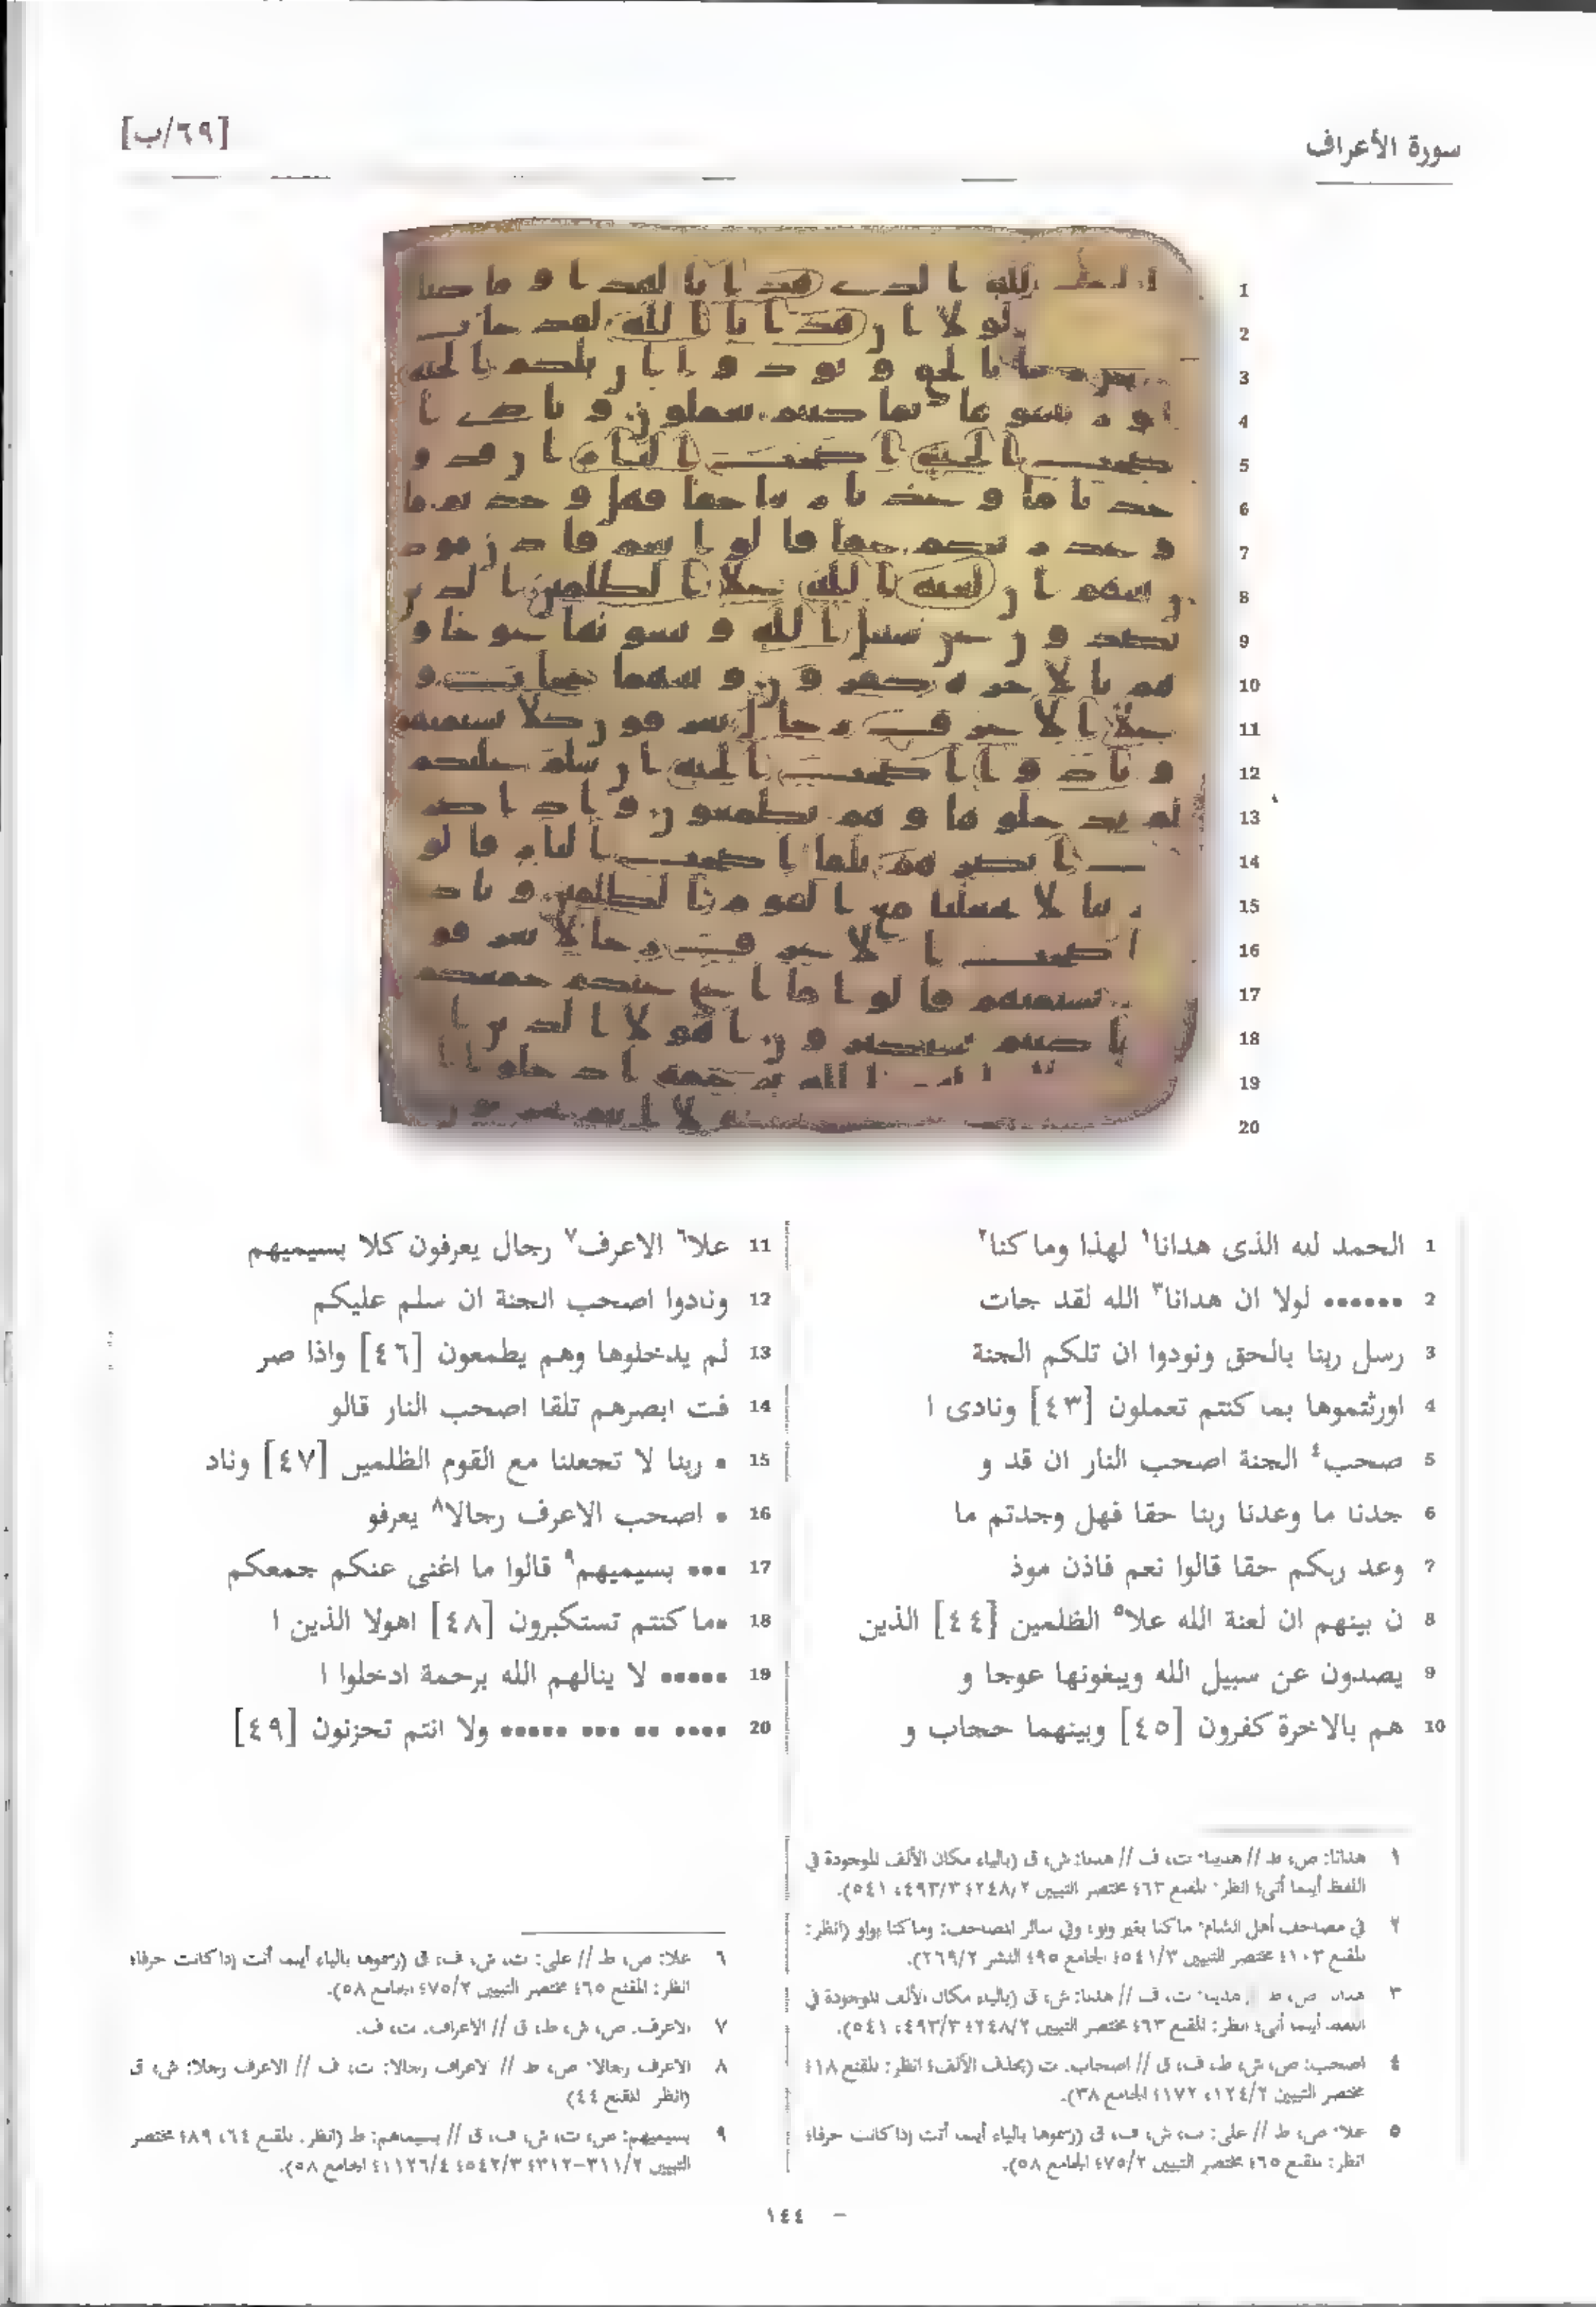 سورة الأعراف
[٦٩/ب]
1
2
3
4
5
6
7
8
9
10
11
12
13
14
15
16
17
18
19
20
1 الحمد لله الذى هدانا١ لهذا وما كنا٢
2 •••••• لولا ان هدانا٣ الله لقد جات
3 رسل ربنا بالحق ونودوا ان تلكم الجنة
4 اورثتموها بما كنتم تعملون [٤٣] ونادى ا
5 صحب٤ الجنة اصحب النار ان قد و
6 جدنا ما وعدنا ربنا حقا فهل وجدتم ما
7 وعد ربكم حقا قالوا نعم فاذن موذ
8 ن بينهم ان لعنة الله علا٥ الظلمين [٤٤] الذين
9 يصدون عن سبيل الله ويبغونها عوجا و
10 هم بالاخرة كفرون [٤٥] وبينهما حجاب و
11 علا٦ الاعرف٧ رجال يعرفون كلا بسيميهم
12 ونادوا اصحب الجنة ان سلم عليكم
13 لم يدخلوها وهم يطمعون [٤٦] واذا صر
14 فت ابصرهم تلقا اصحب النار قالو
15 • ربنا لا تجعلنا مع القوم الظلمين [٤٧] وناد
16 • اصحب الاعرف رجالا٨ يعرفو
17 ••• بسيميهم٩ قالوا ما اغنى عنكم جمعكم
18 •ما كنتم تستكبرون [٤٨] اهولا الذين ا
19 ••••• لا ينالهم الله برحمة ادخلوا ا
20 •••• •• ••• ••••• ولا انتم تحزنون [٤٩]
١ هدانا: ص، ط // هدينا: ت، ف // هدىنا: ش، ق (بالياء مكان الألف الموجودة في
اللفظ أينما أتى؛ انظر: المقنع ٤٦٣ مختصر التبيين ٢٤٨/٢؛ ٤٩٣/٣، ٥٤١).
٢ في مصاحف أهل الشام: ما كنا بغير واو، وفي سائر المصاحف: وما كنا بواو (انظر:
المقنع ١٠٣؛ مختصر التبيين ٥٤١/٣؛ الجامع ٩٥؛ النشر ٢٦٩/٢).
٣ هدانا: ص، ط // هدينا: ت، ف // هدىنا: ش، ق (بالياء مكان الألف الموجودة في
اللفظ أينما أتى؛ انظر: المقنع ٤٦٣ مختصر التبيين ٢٤٨/٢؛ ٤٩٣/٣، ٥٤١).
٤ اصحب: ص، ش، ط، ف، ق // اصحاب: ت (بحذف الألف؛ انظر: المقنع ١٨؛
مختصر التبيين ١٢٤/٢، ١٧٢؛ الجامع ٣٨).
٥ علا: ص، ط // على: ت، ش، ف، ق (رسموها بالياء أينما أتت إذا كانت حرفا؛
انظر: المقنع ٦٥؛ مختصر التبيين ٧٥/٢؛ الجامع ٥٨).
٦ علا: ص، ط // على: ت، ش، ف، ق (رسموها بالياء أينما أتت إذا كانت حرفا؛
انظر: المقنع ٦٥؛ مختصر التبيين ٧٥/٢؛ الجامع ٥٨).
٧ الاعرف: ص، ش، ط، ق // الاعراف: ت، ف.
٨ الاعرف رجالا: ص، ط // الاعراف رجالا: ت، ف // الاعرف رجلا: ش، ق
(انظر المقنع ٤٤)
٩ بسيميهم: ص، ت، ش، ف، ق // بسيماهم: ط (انظر: المقنع ٦٤، ٨٩؛ مختصر
التبيين ٣١١/٢-٣١٢؛ ٥٤٢/٣؛ ١١٢٦/٤؛ الجامع ٥٨).
١٤٤ -